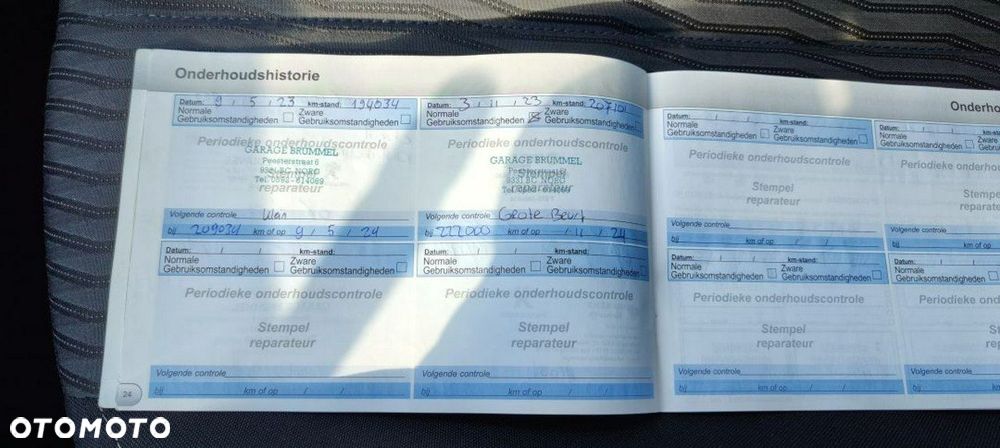 Onderhoudshistorie
Datum: 9 / 5 / 23 km-stand: 194034
Normale Gebruiksomstandigheden Zware Gebruiksomstandigheden
Periodieke onderhoudscontrole
GARAGE BRUMMEL
Peesterstraat 6
9331 BC NORG
Tel. 0592 - 614069
Stempel
reparateur
Volgende controle Klan
bij 209034 km of op 9 / 5 / 24
Datum: 3 / 11 / 23 km-stand: 207101
Normale Gebruiksomstandigheden Zware Gebruiksomstandigheden
Periodieke onderhoudscontrole
GARAGE BRUMMEL
Stempel
reparateur
Volgende controle Grote Beurt
bij 222000 km of op / 11 / 24
Datum: / / km-stand:
Normale Gebruiksomstandigheden Zware Gebruiksomstandigheden
Periodieke onderhoudscontrole
Stempel
reparateur
Volgende controle
bij km of op / /
Datum: / / km-stand:
Normale Gebruiksomstandigheden Zware Gebruiksomstandigheden
Periodieke onderhoudscontrole
Stempel
reparateur
Volgende controle
bij km of op / /
24
Onderho
Datum: / / km-stand:
Normale Gebruiksomstandigheden Zware Gebruiksomstandigheden
Periodieke onderhoudscontrole
Stempel
reparateur
Volgende controle
bij km of op / /
Datum: / /
Normale
Gebruiksomstandig
Periodieke o
St
repa
Volgende controle
bij km
Datum: / / km-stand:
Normale Gebruiksomstandigheden Zware Gebruiksomstandigheden
Periodieke onderhoudscontrole
Stempel
reparateur
Volgende controle
bij km of op / /
Datum: / /
Normale
Gebruiksomstandigh
Periodieke on
St
repa
Volgende controle
bij km
OTOMOTO